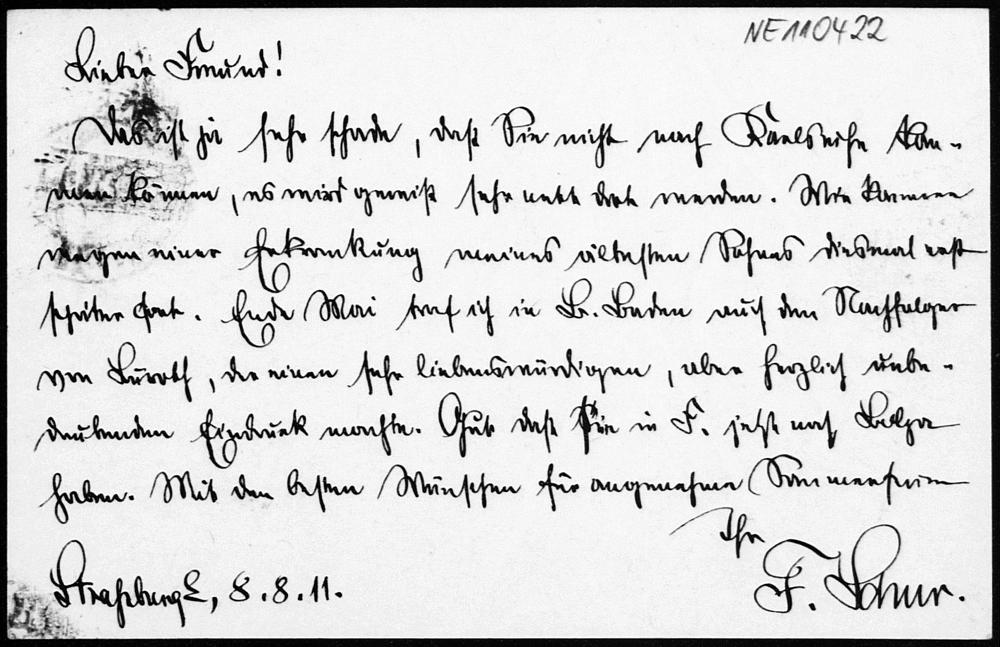 NE110422
Lieber Freund!
Das ist ja sehr schade, daß Sie nicht nach Karlsruhe kom-
men können, es wird gewiß sehr nett dort werden. Wir kommen
wegen einer Erkrankung meines ältesten Sohnes diesmal erst
später fort. Ende Mai traf ich in B. Baden auch den Nachfolger
von Lüroth, der einen sehr liebenswürdigen, aber herzlich unbe-
deutenden Eindruck machte. Gut daß Sie in F. jetzt noch
haben. Mit den besten Wünschen für angenehme Sommerferien
Ihr
Straßburg E, 8.8.11.
F. Schur.